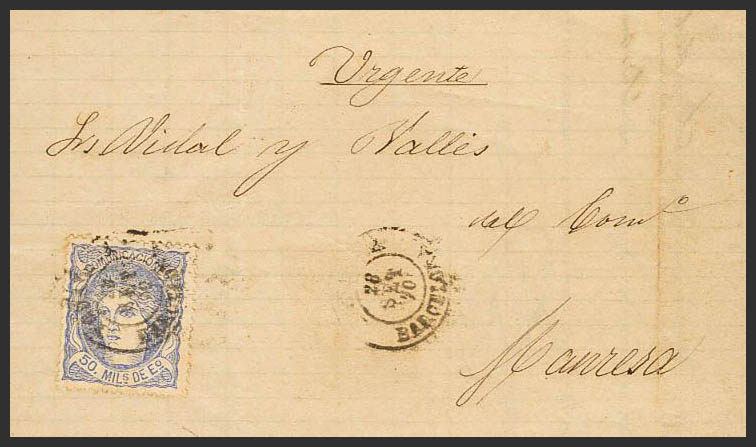 Urgente
Srs Vidal y Vallés
del Comº
Manresa
COMUNICACIONES
50. MILS DE Eº
28
70
BARCELONA